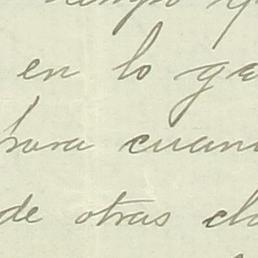 en lo ga
hora cuan
de otras cla